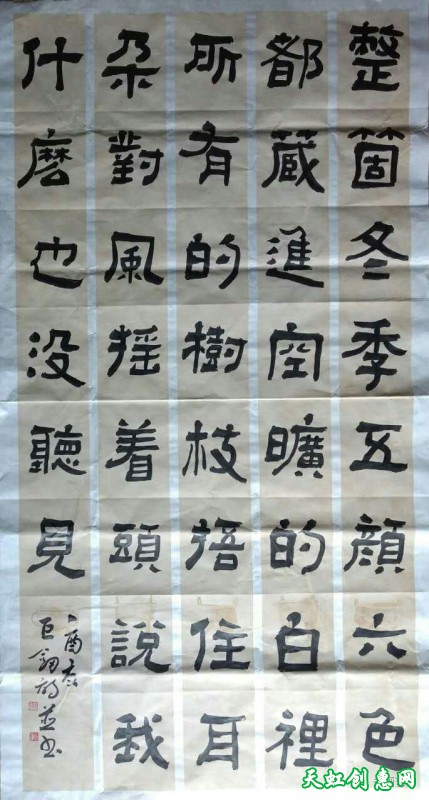 整箇冬季五顏六色
都藏進空曠的白裡
所有的樹枝捂住耳
朵對風摇着頭說我
什麽也没聽見
天虹创惠网